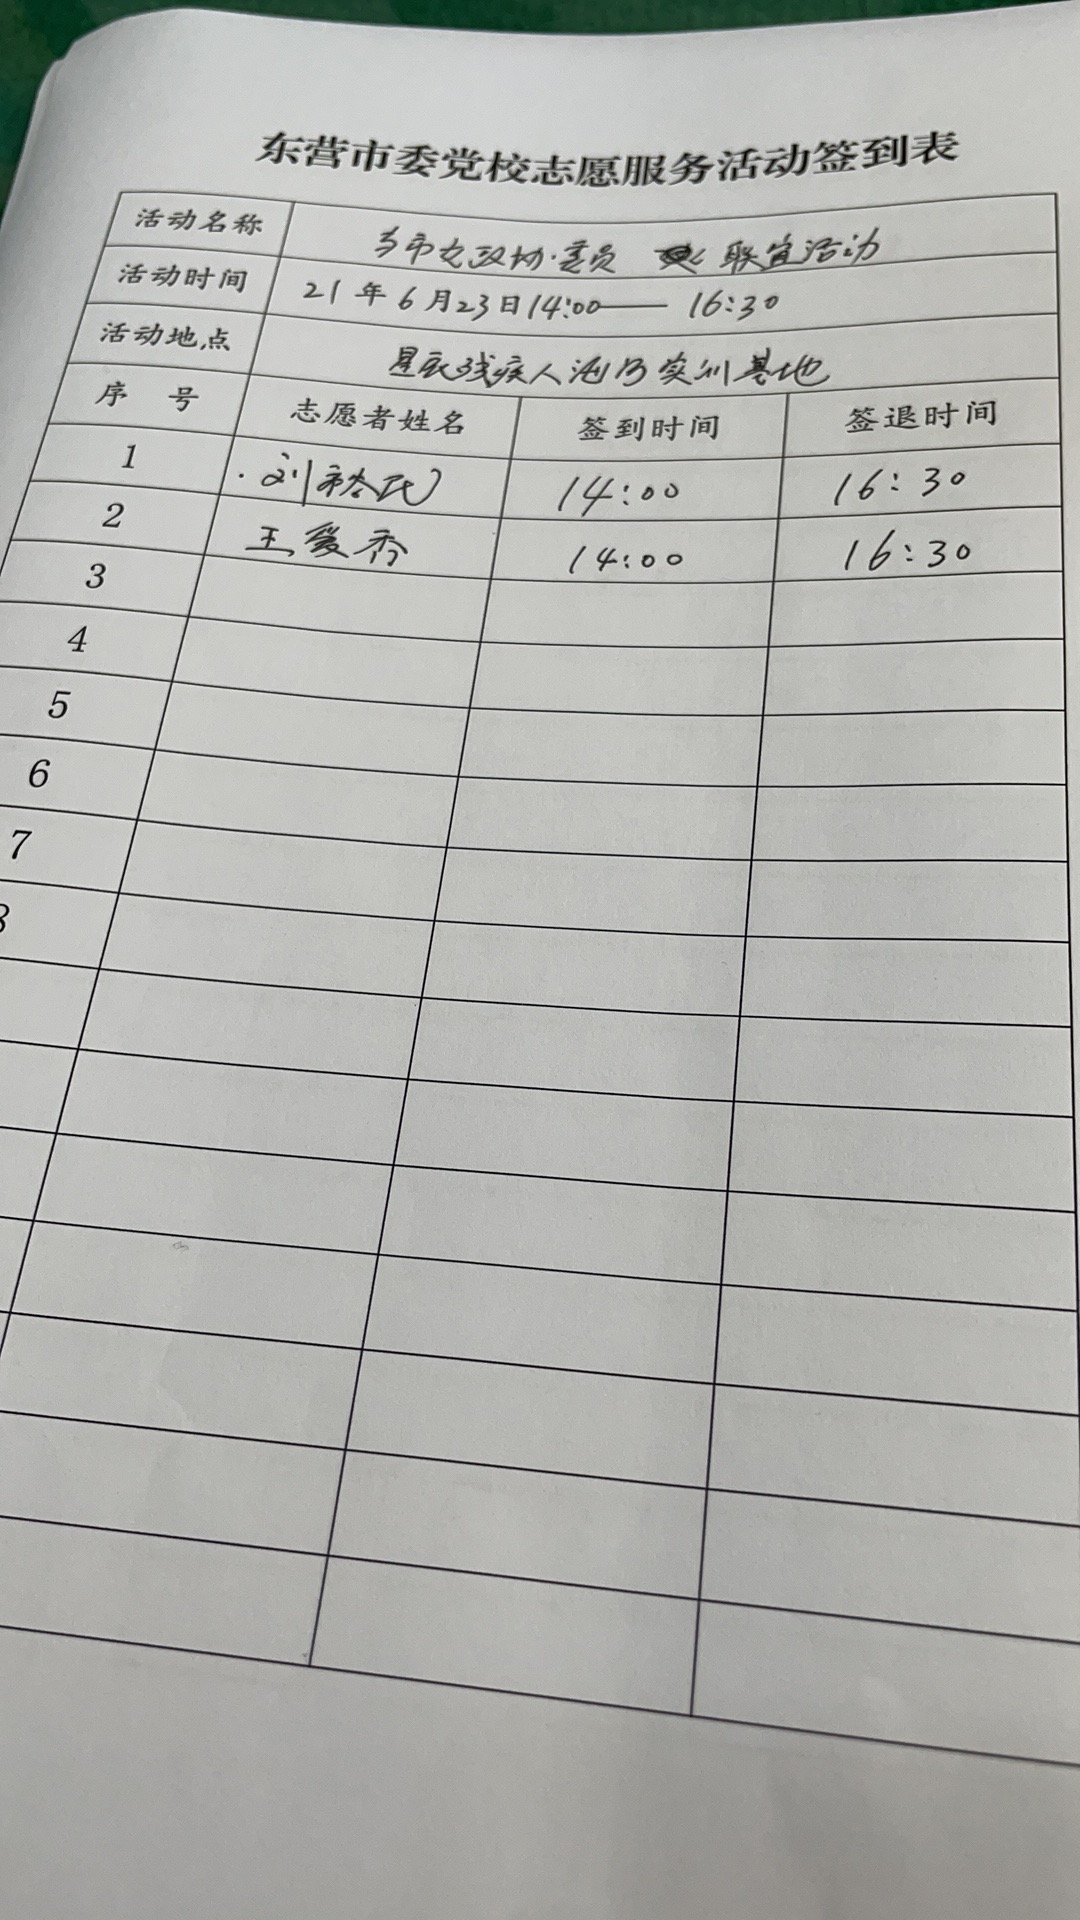 东营市委党校志愿服务活动签到表
活动名称 市女政协委员 联谊活动
活动时间 21年6月23日14:00—— 16:30
活动地点 残疾人 实训基地
序 号 志愿者姓名 签到时间 签退时间
1 刘裕民 14:00 16:30
2 王爱香 14:00 16:30
3
4
5
6
7
8